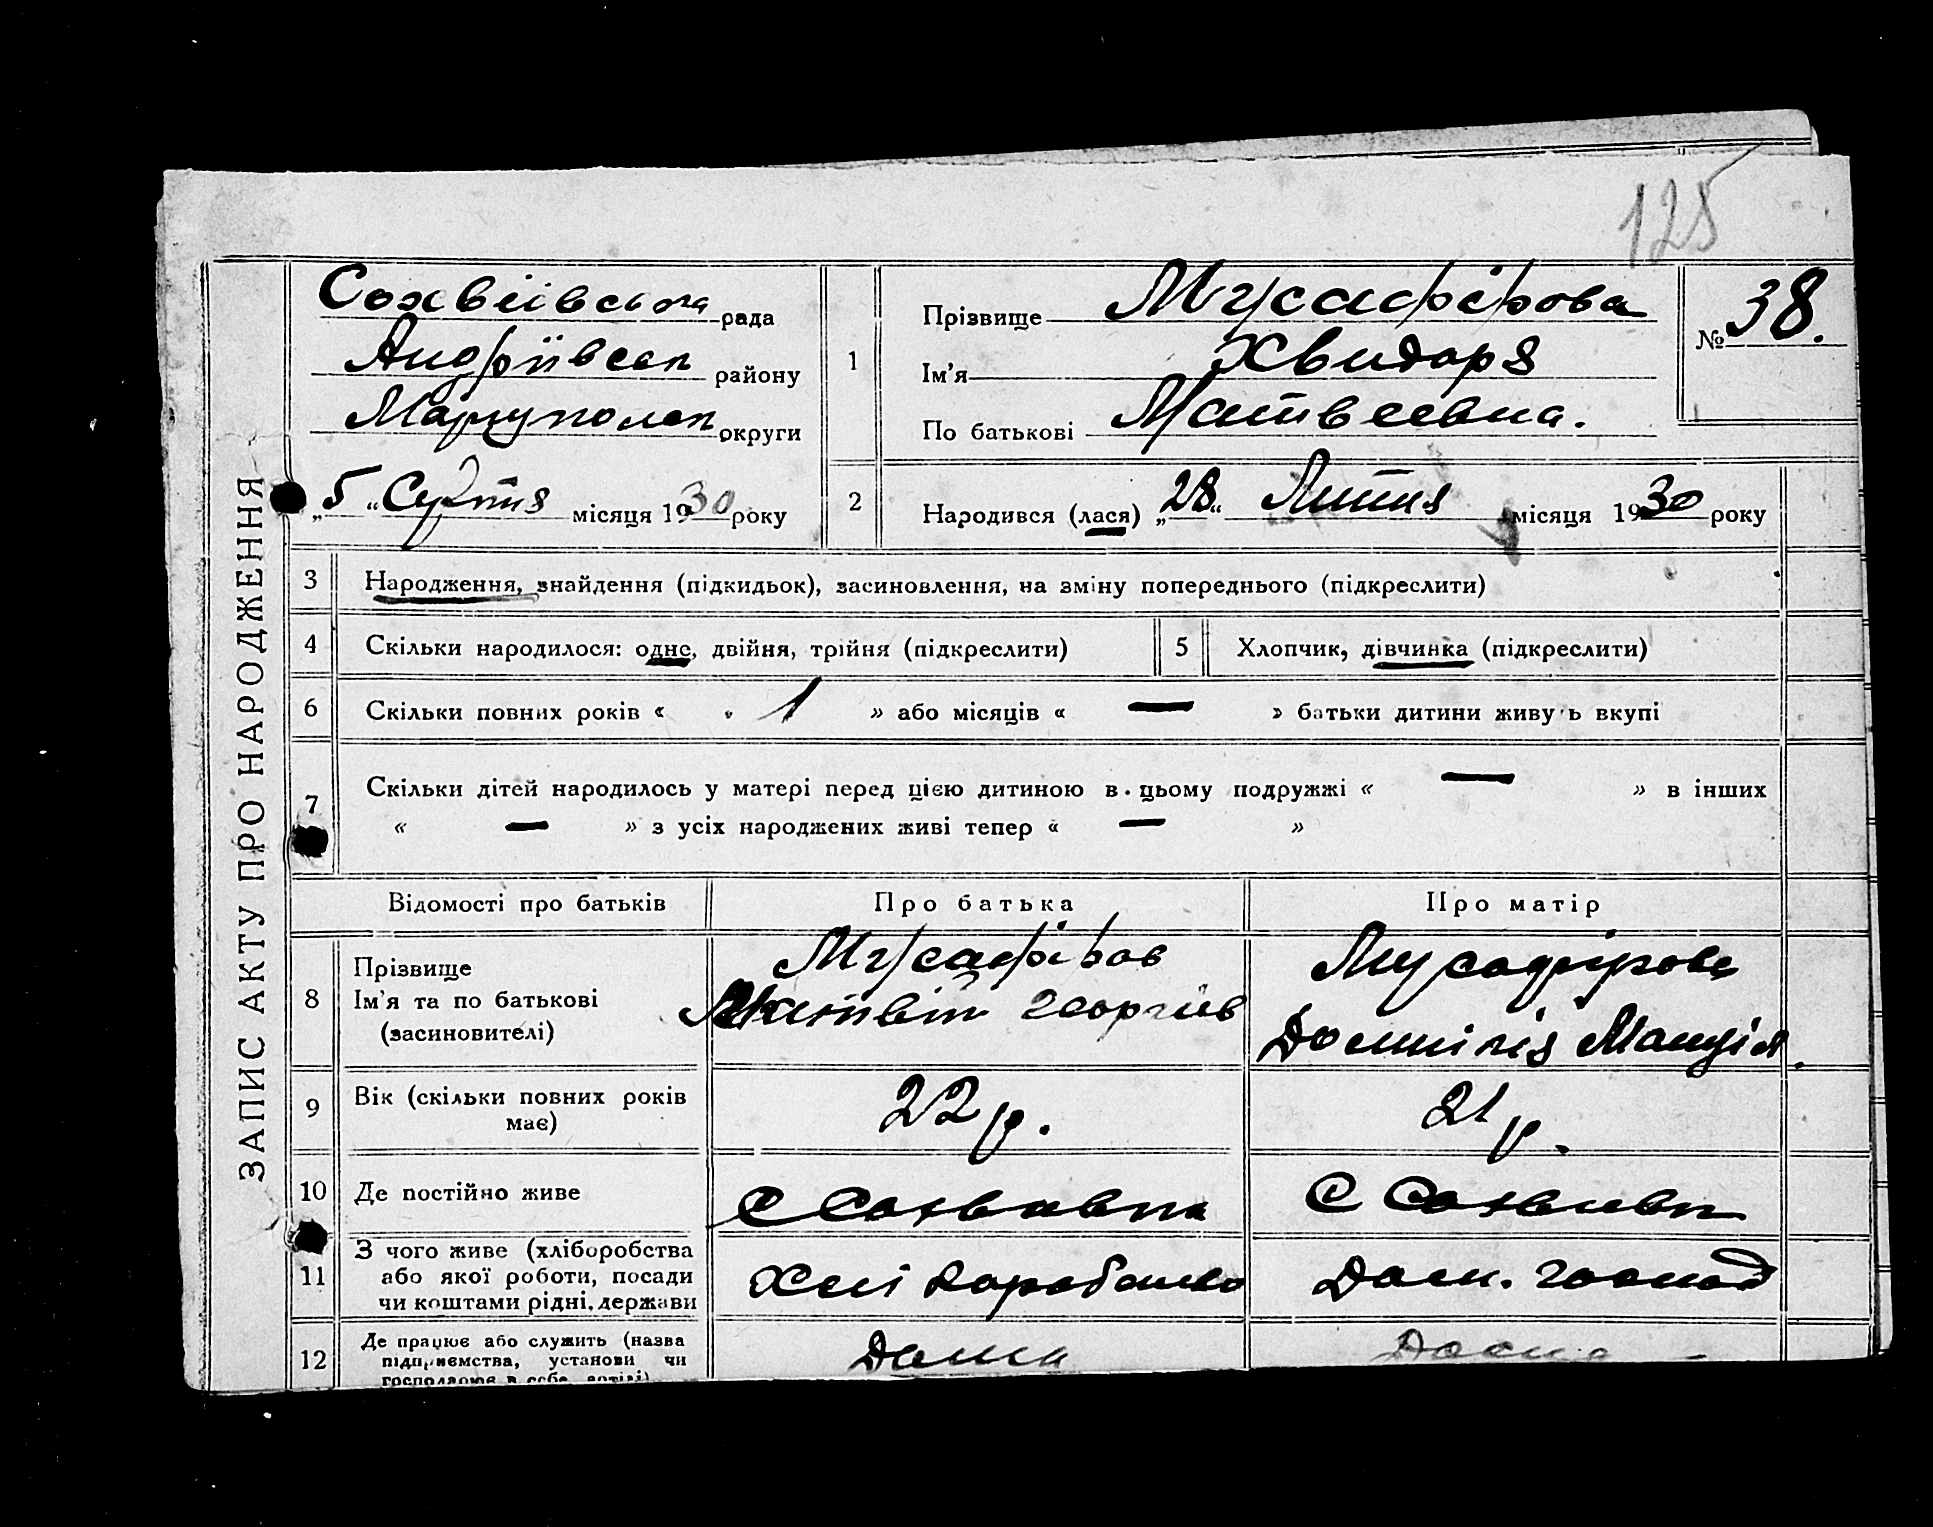 125
ЗАПИС АКТУ ПРО НАРОДЖЕННЯ
Сохвіівська рада
Андріівськ району
Маріупольск округи
„5“ Серпня місяця 1930 року
1
Прізвище Мусафірова
Ім'я Хвидоря
По батькові Матвеевна.
№ 38.
2
Народився (лася) „28“ Липня місяця 1930 року
3 Народження, знайдення (підкидьок), засиновлення, на зміну попереднього (підкреслити)
4 Скільки народилося: одне, двійня, трійня (підкреслити) 5 Хлопчик, дівчинка (підкреслити)
6 Скільки повних років « 1 » або місяців « — » батьки дитини живуть вкупі
7 Скільки дітей народилось у матері перед цією дитиною в цьому подружжі « — » в інших
« — » з усіх народжених живі тепер « — »
Відомості про батьків Про батька Про матір
8
Прізвище
Ім'я та по батькові
(засиновителі)
Мусафіров
Матвій Георгіів
Мусафірова
9 Вік (скільки повних років
має)
22 р. 21 р.
10 Де постійно живе с Сохвиівка с Сохвиівк
11
З чого живе (хліборобства
або якої роботи, посади
чи коштами рідні, держави
Хліборобство Дом. господ
12
Де працює або служить (назва
підприємства, установи чи
господарює в себе, артілі)
Дома Дома